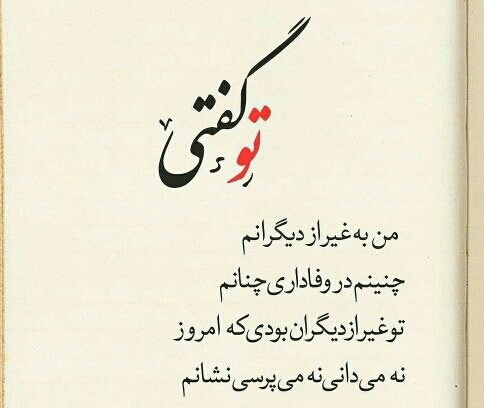 تو گفتی
من به غیر از دیگرانم
چنینم در وفاداری چنانم
تو غیر از دیگران بودی که امروز
نه می‌دانی نه می‌پرسی نشانم